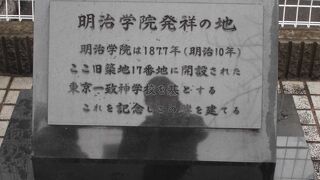 明治学院発祥の地
明治学院は1877年(明治10年)
ここ旧築地17番地に開設された
東京一致神学校を基とする
これを記念しこの碑を建てる